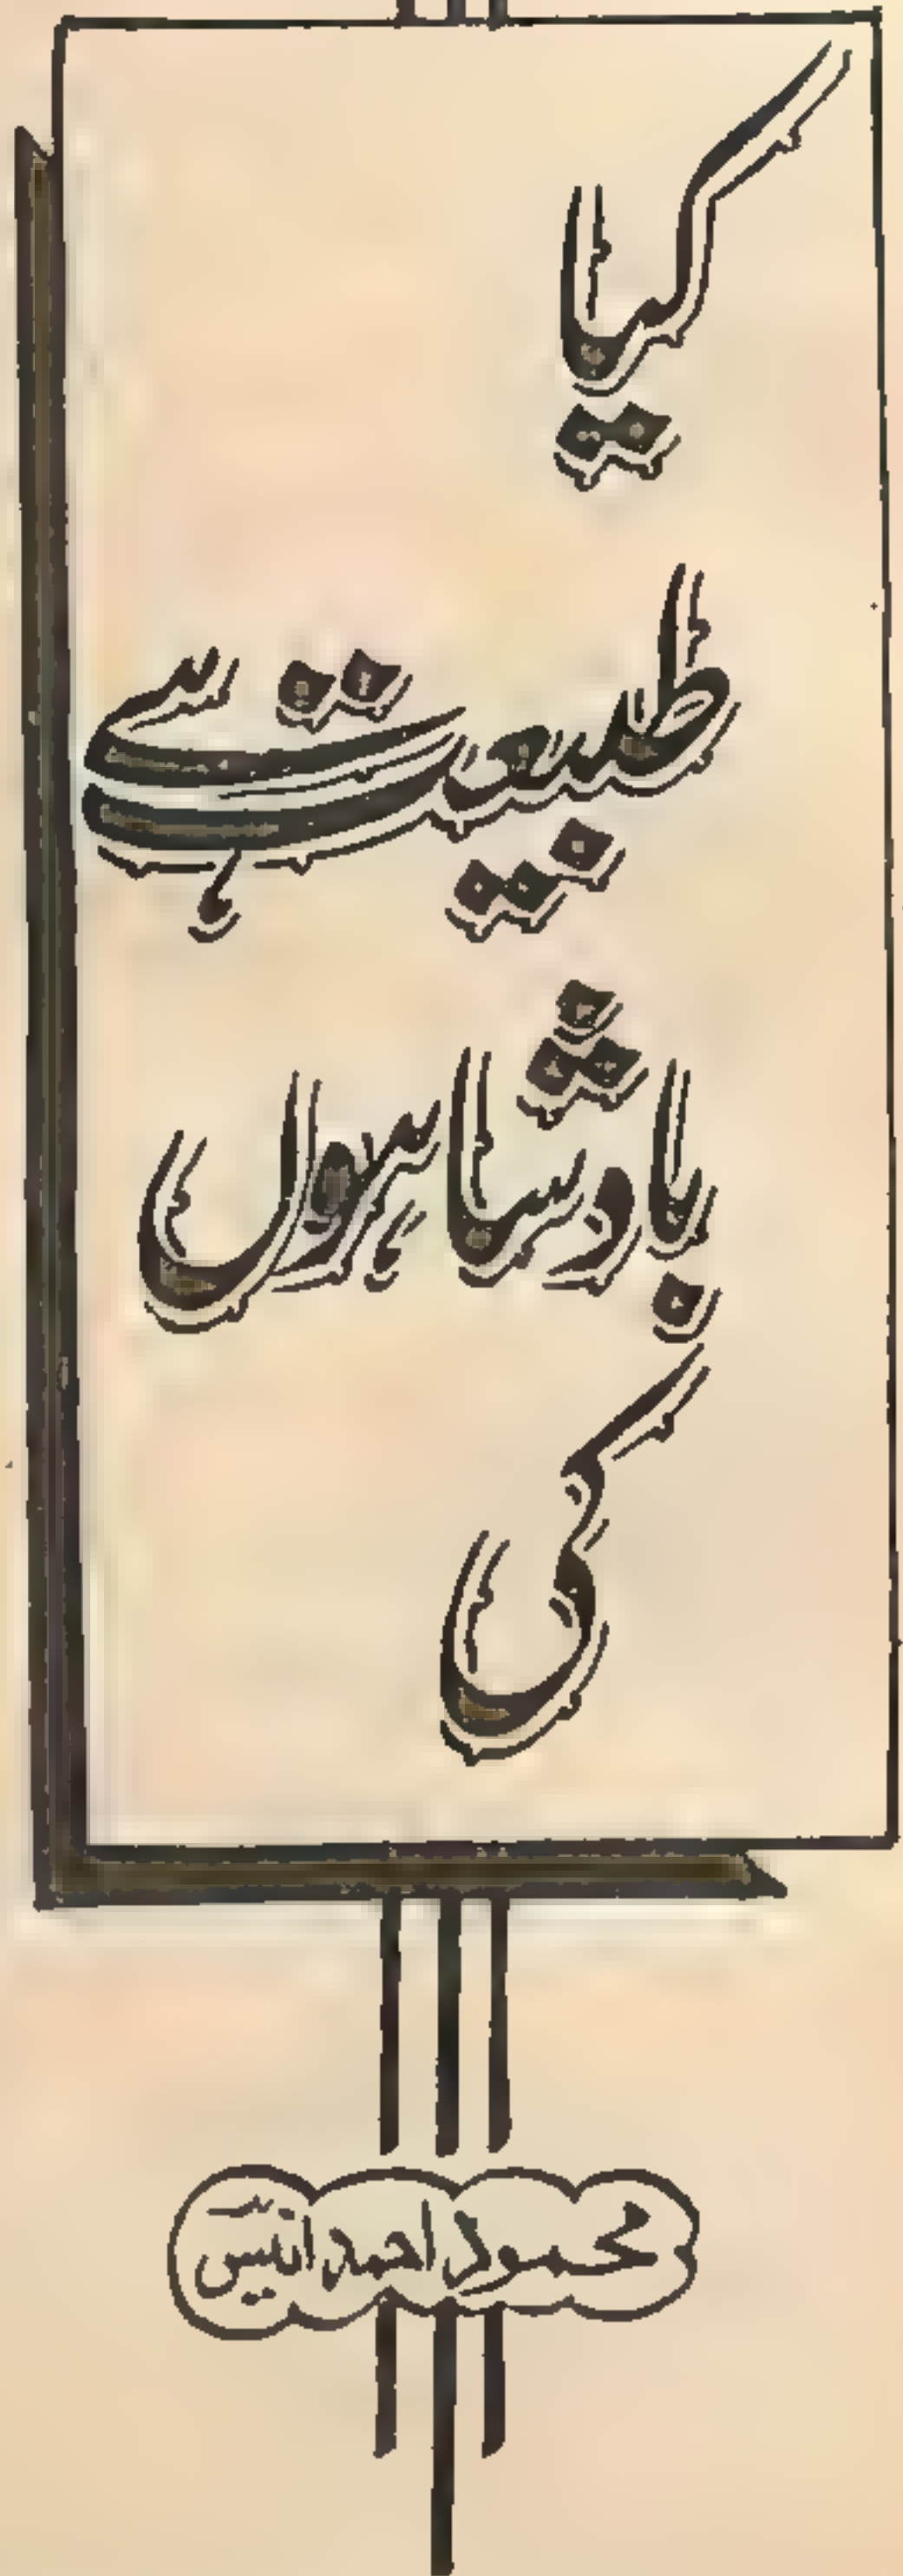 کیا
طبیعت ہے
بادشاہوں
کی
محمود احمد انیس